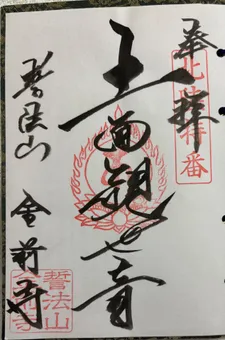 奉拝
十一面観世音
誓法山
金前寺
誓法山
金前寺